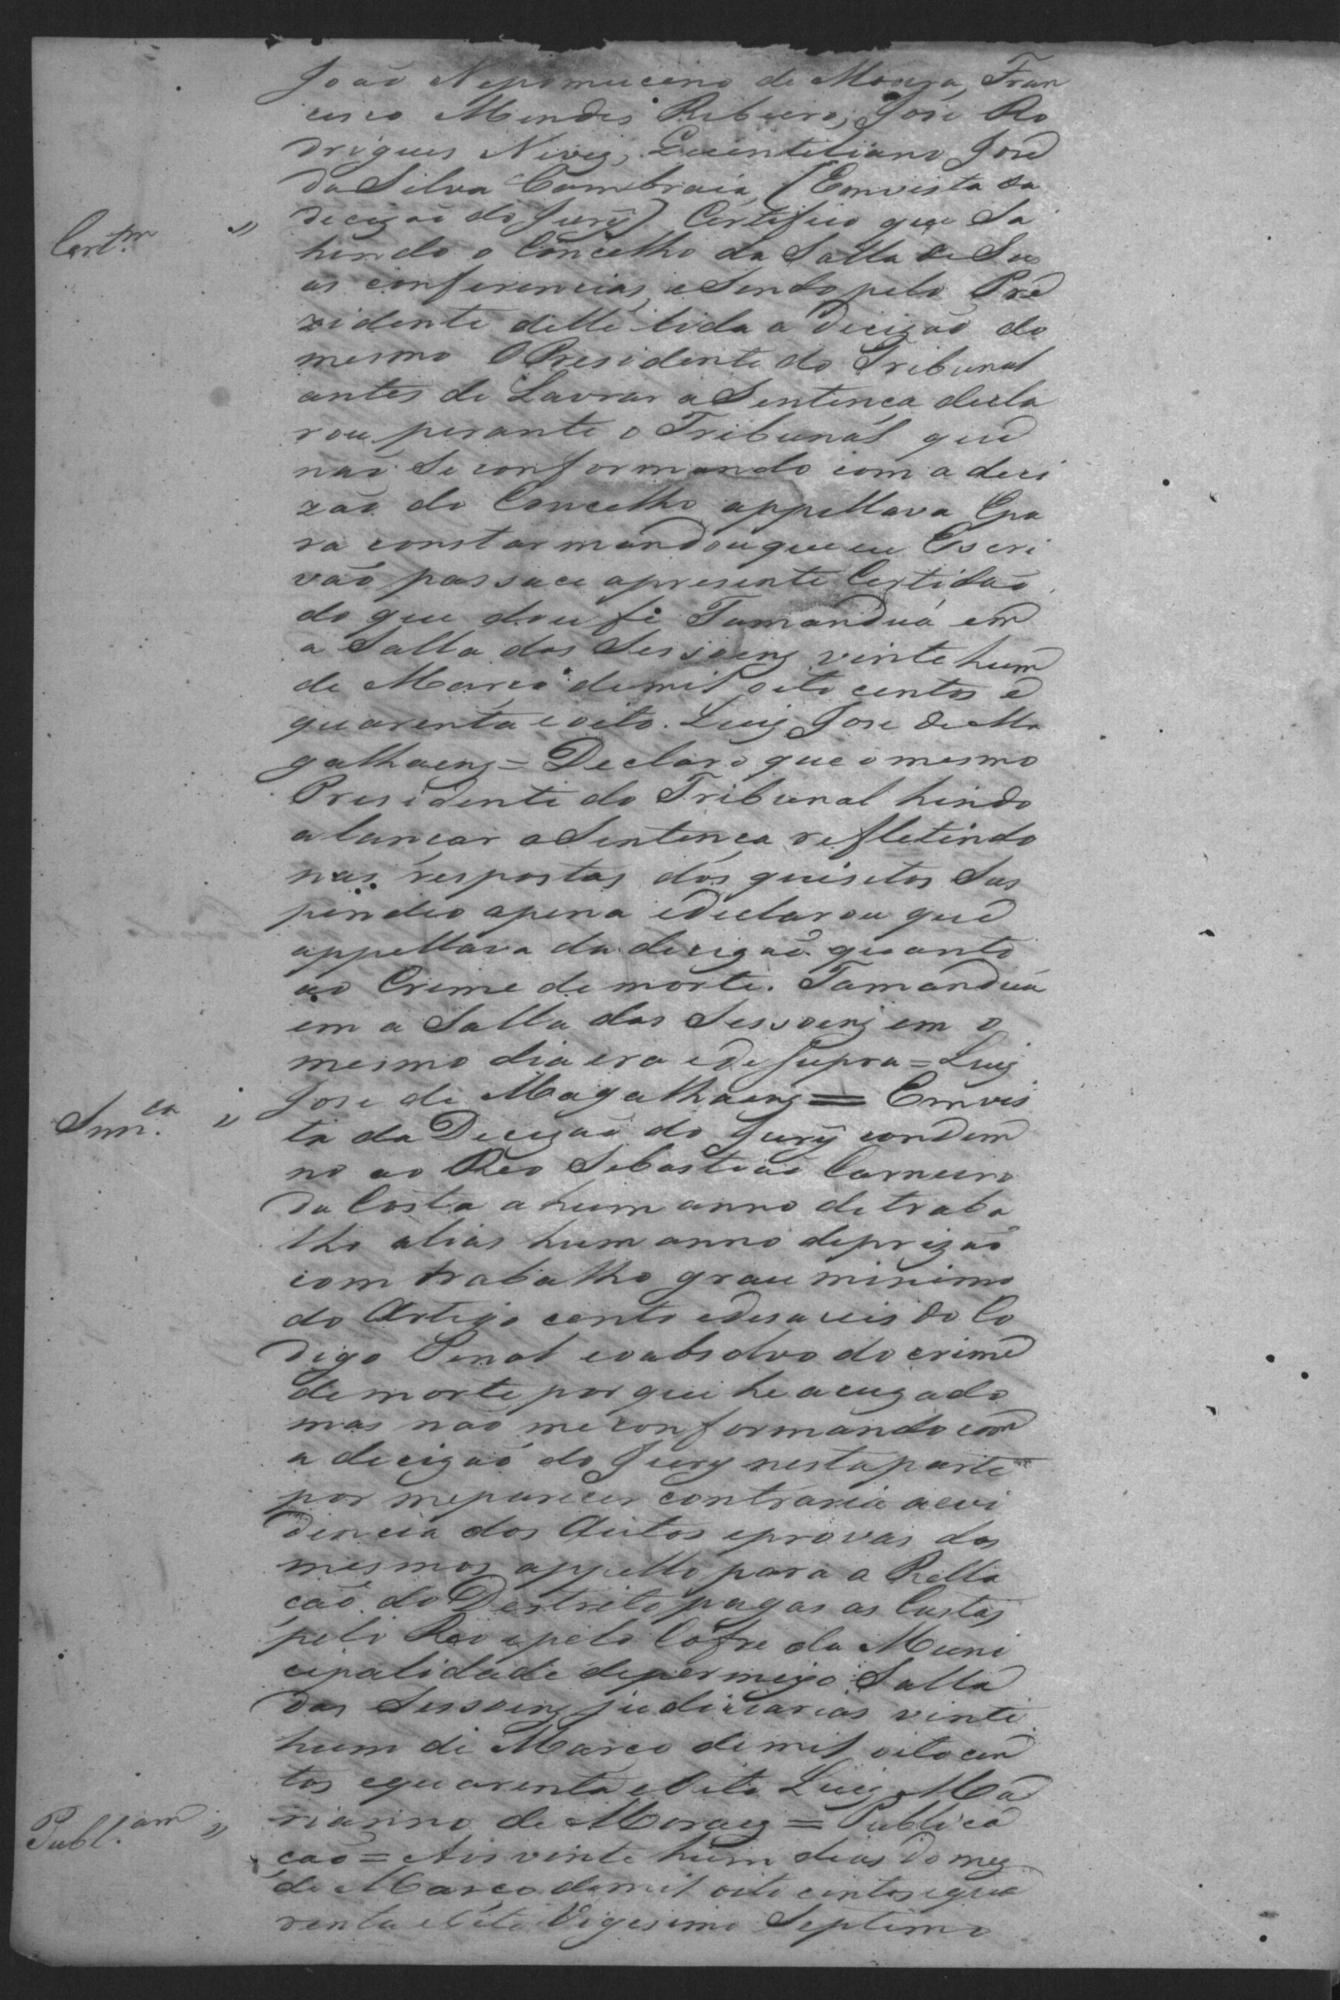 João Nepomuceno de Moura, Fran
cisco Mendis Ribeiro, José Ro
drigues Nives, Quintiliano José
da Silva Cambraia, (Em vista da
decizão do Jury) Certifico que Sa
Cert.m "
hindo o Concelho da Salla de Su
as conferencias, e Sendo pelo Pre
zidente delle lida a decizão do
mesmo O Presidente do Tribunal
antes de Lavrar a Sentença decla
rou perante o Tribunal que
não Se conformando com a deci
zão do Concelho appellava Epa
ra constar mandou que eu Escri
vão passace a presente Certidão,
do que dou fé Tamanduá em
a Salla das Sessoens vinte hum
de Março de mil oito centos e
quarenta e oito. Luiz Jose de Ma
galhaens = Declaro que o mesmo
Presidente do Tribunal hindo
a lançar a Sentença refletindo
nas respostas dos quisitos Sus
pendeo a pena e declarou que
appellava da decizão quanto
ao Crime de morte. Tamanduá
em a Salla das Sessoens em o
mesmo dia era e de supra = Luiz
Jose de Magalhaens = Em vis
Snn.ca "
ta da Decizão do Jury condem
no ao Reo Sebastião Carneiro
da Costa a hum anno de traba
lho alias hum anno de prizão
com trabalho grau minimo
do Artigo cento e desaceis do Co
digo Penal e o absolvo do crime
de morte por que he acuzado
mas não me conformando com
a decizão do Jury nesta parte
por me parecer contraria a evi
dencia dos Autos e provas dos
mesmos appello para a Rella
ção do Destrito pagas as Custas
pelo Reo e pelo Cofre da Muni
cipalidade de permeio Salla
das Sessoens judiciarias vinte
hum de Março de mil oito cen
tos e quarenta e Oito Luiz Ma
rianno de Moraes = Publica
Publ.am "
ção = Aos vinte hum dias do mez
de Março de mil oito centos e qua
renta e Oito Vigesimo Septimo